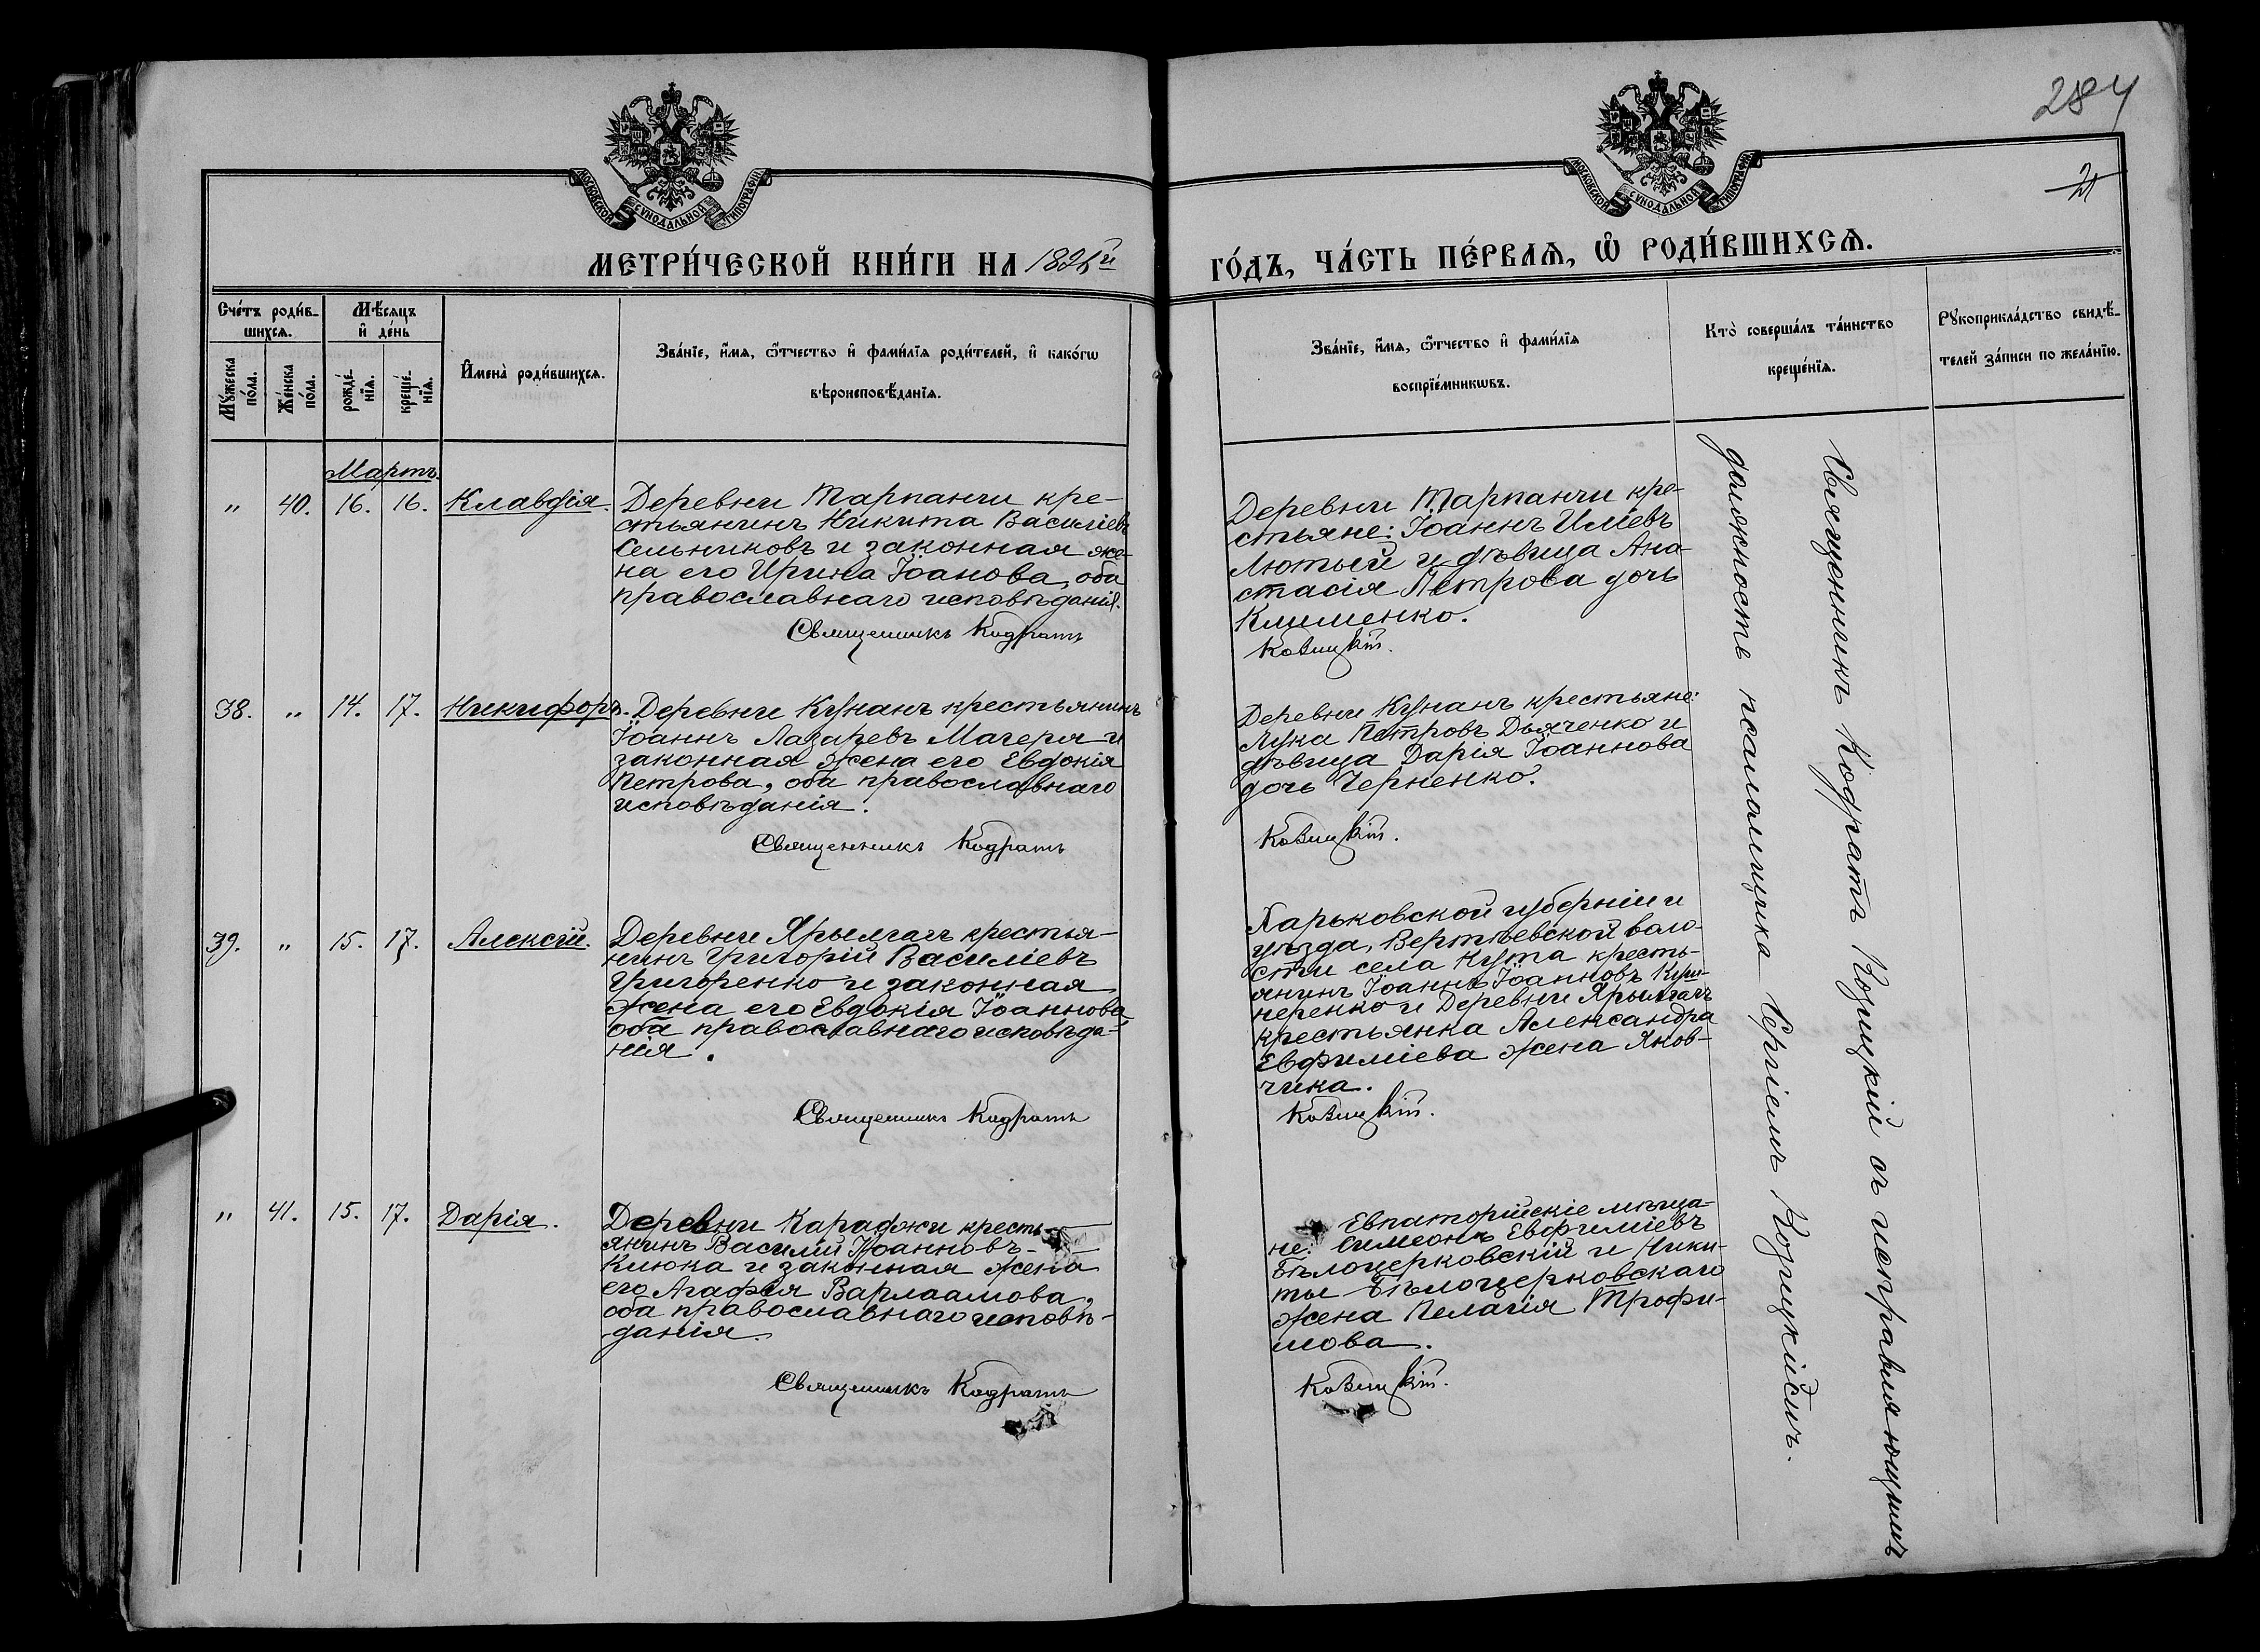 284
21
МОСКОВСКОЙ СУНОДАЛЬНОЙ ТИПОГРАФІИ
МОСКОВСКОЙ СУНОДАЛЬНОЙ ТИПОГРАФІИ
МЕТРИ́ЧЕСКОЙ КНИ́ГИ НА 1896й
ГО́ДЪ, ЧА́СТЬ ПЕ́РВАѦ, Ѡ РОДИ́ВШИХСѦ.
Сче́тъ роди́в-
шихсѧ.
Мꙋ́жеска
по́ла.
Же́нска
по́ла.
Мѣ́сѧцъ
и де́нь
рожде́-
нїѧ.
креще́-
нїѧ.
Имена̀ роди́вшихсѧ.
Зва́нїе, и́мѧ, ѻ́тчество и фами́лїѧ роди́телей, и како́гѡ
вѣроисповѣ́данїѧ.
Зва́нїе, и́мѧ, ѻ́тчество и фами́лїѧ
воспрїе́мникѡвъ.
Кто̀ соверша́лъ та́инство
креще́нїѧ.
Рꙋкоприкла́дство свидѣ́-
телей за́писи по жела́нїю.
Мартъ.
" 40. 16. 16. Клавдія.
Деревни Тарпанчи кре-
стьянинъ Никита Василіевъ
Сельниковъ и законная же-
на его Ирина Іоанова, оба
православнаго исповѣданія.
Священникъ Кодратъ
Деревни Тарпанчи кре-
стьяне: Іоаннъ Иліевъ
Лютый и дѣвица Ана-
стасія Петрова дочь
Клименко.
Козицкій.
38. " 14. 17. Никифоръ.
Деревни Кунанъ крестьянинъ
Іоаннъ Лазаревъ Мачера и
законная жена его Евдокія
Петрова, оба православнаго
исповѣданія.
Священникъ Кодратъ
Деревни Кунанъ крестьяне:
Лука Петровъ Дьяченко и
дѣвица Дарія Іоаннова
дочь Черненко.
Козицкій.
39. " 15. 17. Алексій.
Деревни Ярылгачъ крестья-
нинъ Григорій Василіевъ
Григоренко и законная
жена его Евдокія Іоаннова
оба православнаго исповѣда-
нія.
Священникъ Кодратъ
Харьковской губерніи и
уѣзда, Вертѣевской воло-
сти села Кута кресть-
янинъ Іоаннъ Іоанновъ
и Деревни Ярылгачъ
крестьянка Александра
Евфиміева жена Яков-
чика.
Козицкій.
" 41. 15. 17. Дарія.
Деревни Караджи кресть-
янинъ Василій Іоанновъ
Клюка и законная жена
его Агафія Варлаамова,
оба православнаго исповѣ-
данія.
Священникъ Кодратъ
Евпаторійскіе мѣща-
не: Симеонъ Евфиміевъ
Бѣлоцерковскій и Ники-
ты Бѣлоцерковскаго
жена Пелагія Трофи-
мова.
Козицкій.
Священникъ Кодратъ Козицкій съ исправляющимъ
должность псаломщика Сергіемъ Козицкимъ.